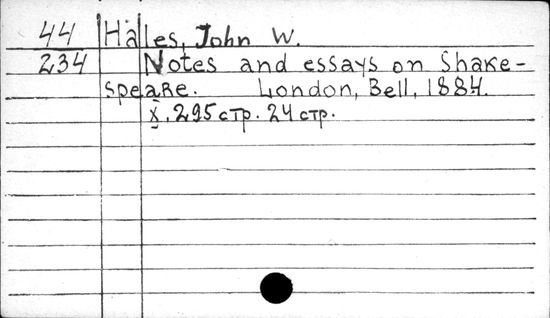 44 Hales, John W.
234 Notes and essays on Shake-
speare. London, Bell, 1884.
X, 295 стр. 24 стр.